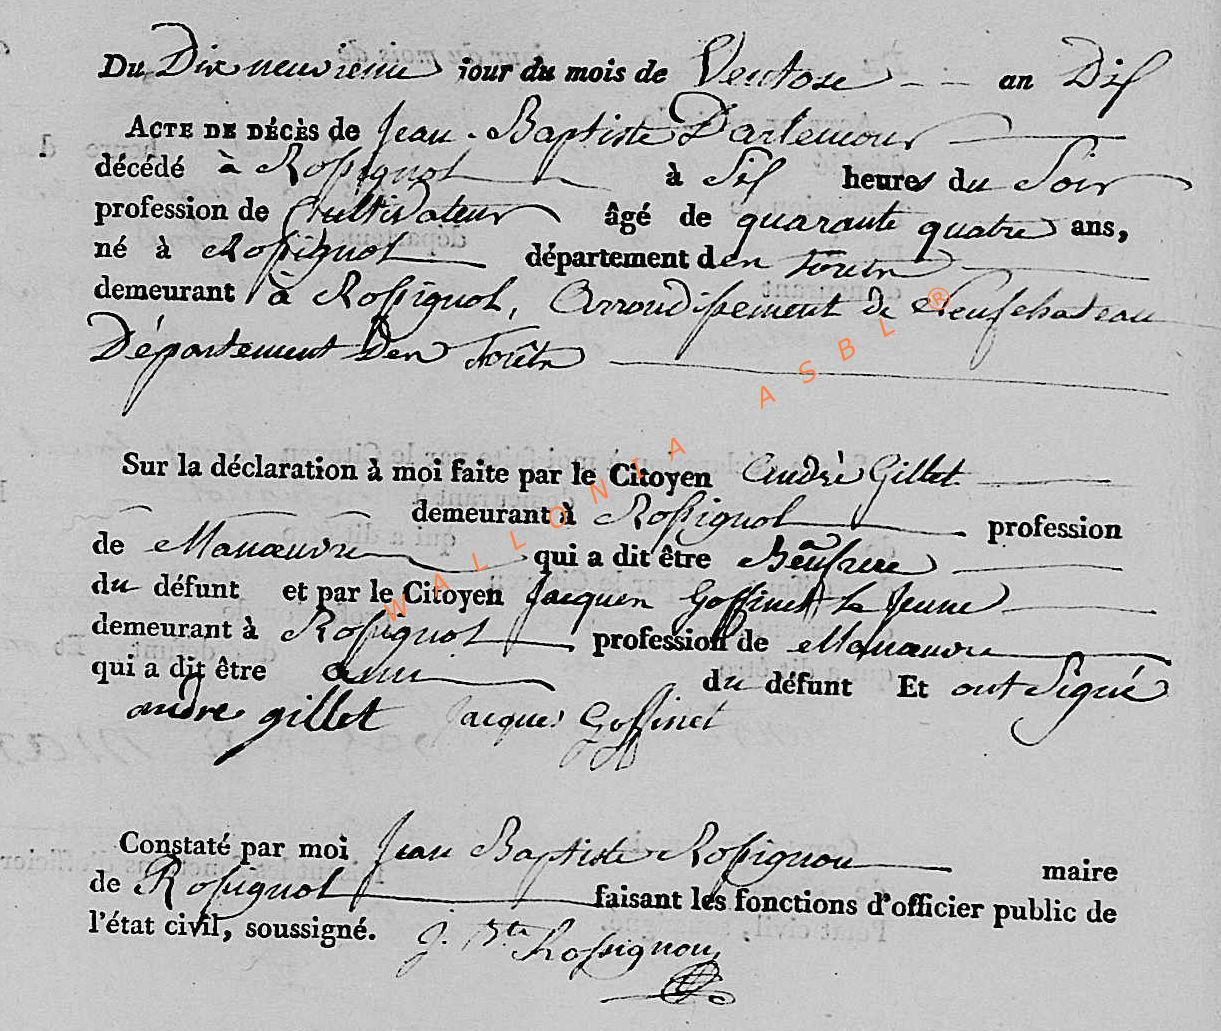 Du Dixneuvieme jour du mois de Ventose an Dix
ACTE DE DÉCÈS de Jean-Baptiste Darlemour
décédé à Rossignol à Six heures du Soir
profession de Cultivateur âgé de quarante quatre ans,
né à Rossignol département des forêts
demeurant à Rossignol, Arrondissement de Neufchateau
Département Des forêts
Sur la déclaration à moi faite par le Citoyen André Gillet
demeurant à Rossignol profession
de Manœuvre qui a dit être Beaufrere
du défunt et par le Citoyen Jacques Goffinet le Jeune
demeurant à Rossignol profession de Manœuvre
qui a dit être ami du défunt Et ont Signé
andre gillet Jacques Goffinet
Constaté par moi Jean Baptiste Rossignon maire
de Rossignol faisant les fonctions d'officier public de
l'état civil, soussigné. J. Bte Rossignon
WALLONIA ASBL ®